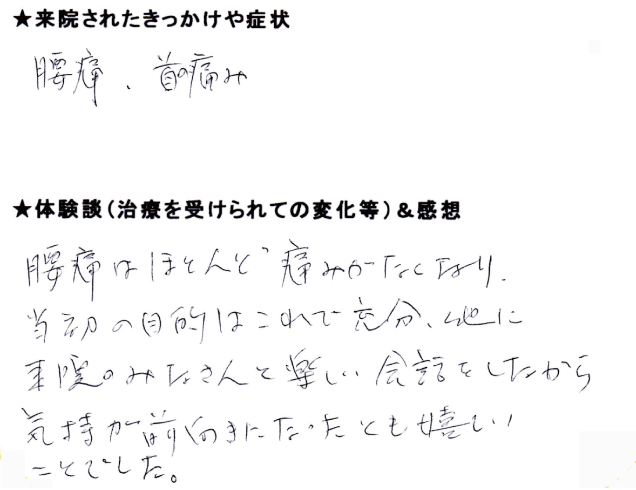 ★来院されたきっかけや症状
腰痛、首の痛み
★体験談（治療を受けられての変化等）＆感想
腰痛はほとんど痛みがなくなり、
当初の目的はこれで充分、他に
来院のみなさんと楽しい会話をしたから
気持が前向きになったとも嬉しい
ことでした。